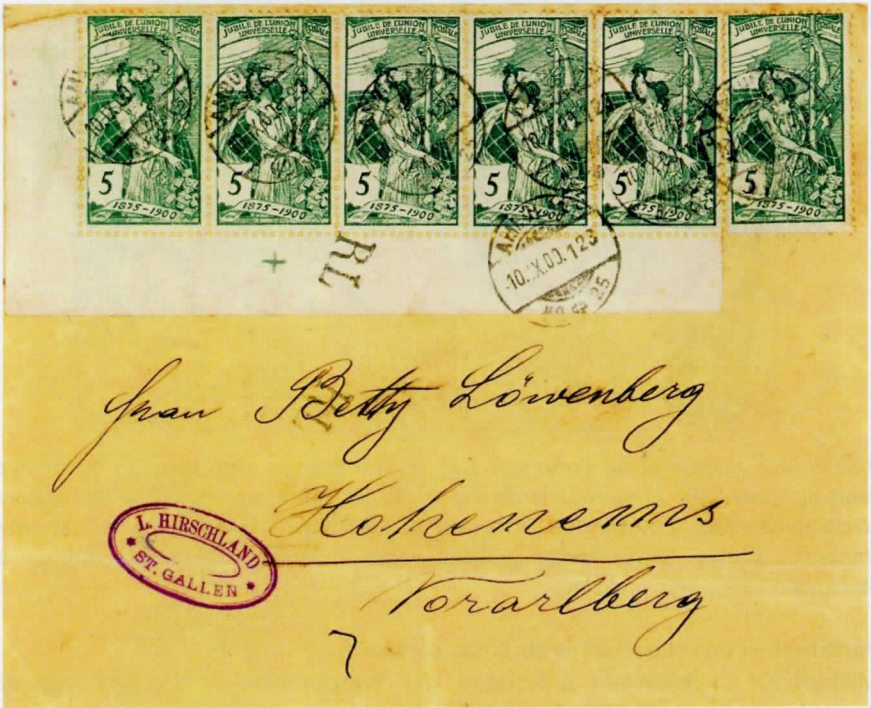 JUBILÉ DE L'UNION POSTALE UNIVERSELLE
5
1875-1900
JUBILÉ DE L'UNION POSTALE UNIVERSELLE
5
1875-1900
JUBILÉ DE L'UNION POSTALE UNIVERSELLE
5
1875-1900
JUBILÉ DE L'UNION POSTALE UNIVERSELLE
5
1875-1900
JUBILÉ DE L'UNION POSTALE UNIVERSELLE
5
1875-1900
JUBILÉ DE L'UNION POSTALE UNIVERSELLE
5
1875-1900
RL
-10.IX.00.123
Frau Betty Löwenberg
Hohenems
L. HIRSCHLAND
* ST. GALLEN *
Vorarlberg
7